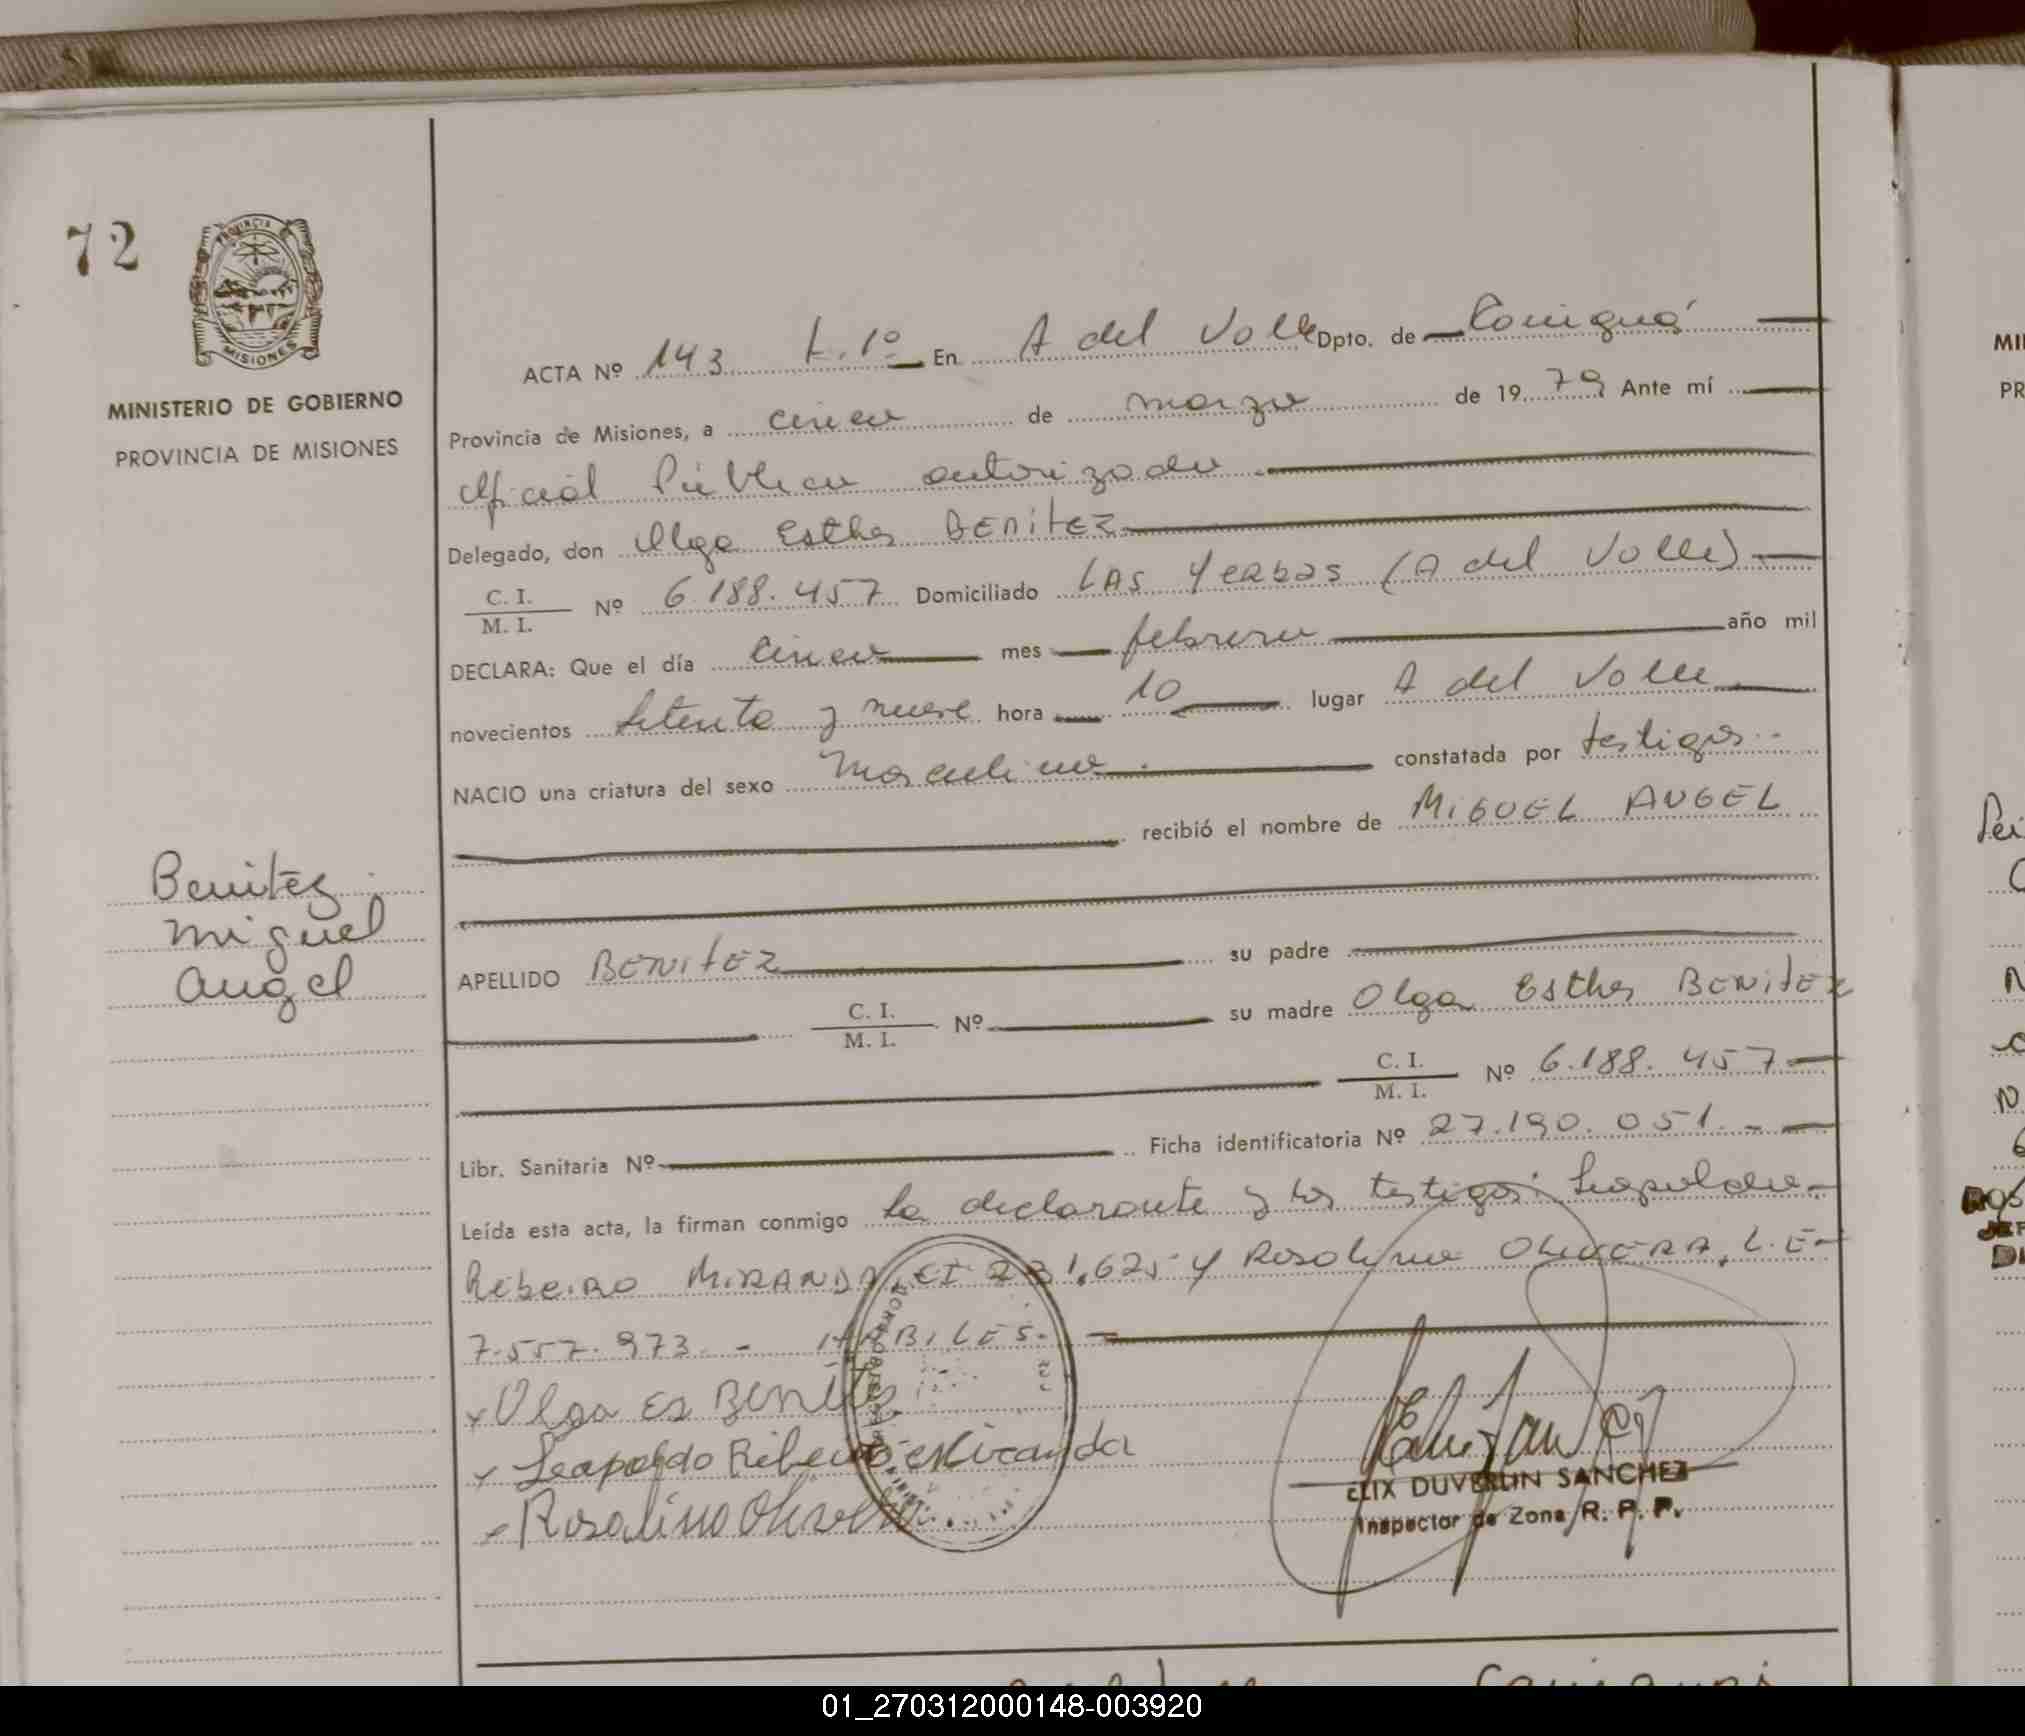 72
PROVINCIA
MISIONES
MINISTERIO DE GOBIERNO
PROVINCIA DE MISIONES
Benitez
Miguel
Angel
ACTA Nº 143 t. 1º En A del Valle Dpto. de Cainguás
Provincia de Misiones, a cinco de marzo de 19 79 Ante mí
Oficial Público autorizado
Delegado, don Olga Esther BENITEZ
C. I.
M. I.
Nº 6.188.457 Domiciliado LAS Yerbas (A del Valle)
DECLARA: Que el día cinco mes febrero año mil
novecientos setenta y nueve hora 10 lugar A del Valle
NACIO una criatura del sexo masculino constatada por testigos
recibió el nombre de MIGUEL ANGEL
APELLIDO BENITEZ su padre
C. I.
M. I.
Nº su madre Olga Esther BENITEZ
C. I.
M. I.
Nº 6.188.457
Libr. Sanitaria Nº Ficha identificatoria Nº 27.190.051.-
Leída esta acta, la firman conmigo la declarante y los testigos: Leopoldo
Ribeiro MIRANDA, CI 231.625 y Rosalino OLIVERA, L.E
7.557.973.- HABILES.
x Olga Es Benitez
x Leopoldo Ribeiro Miranda
x Rosalino Olivera
ELIX DUVERLIN SANCHEZ
Inspector de Zona R. P. P.
MI
PR
01_270312000148-003920